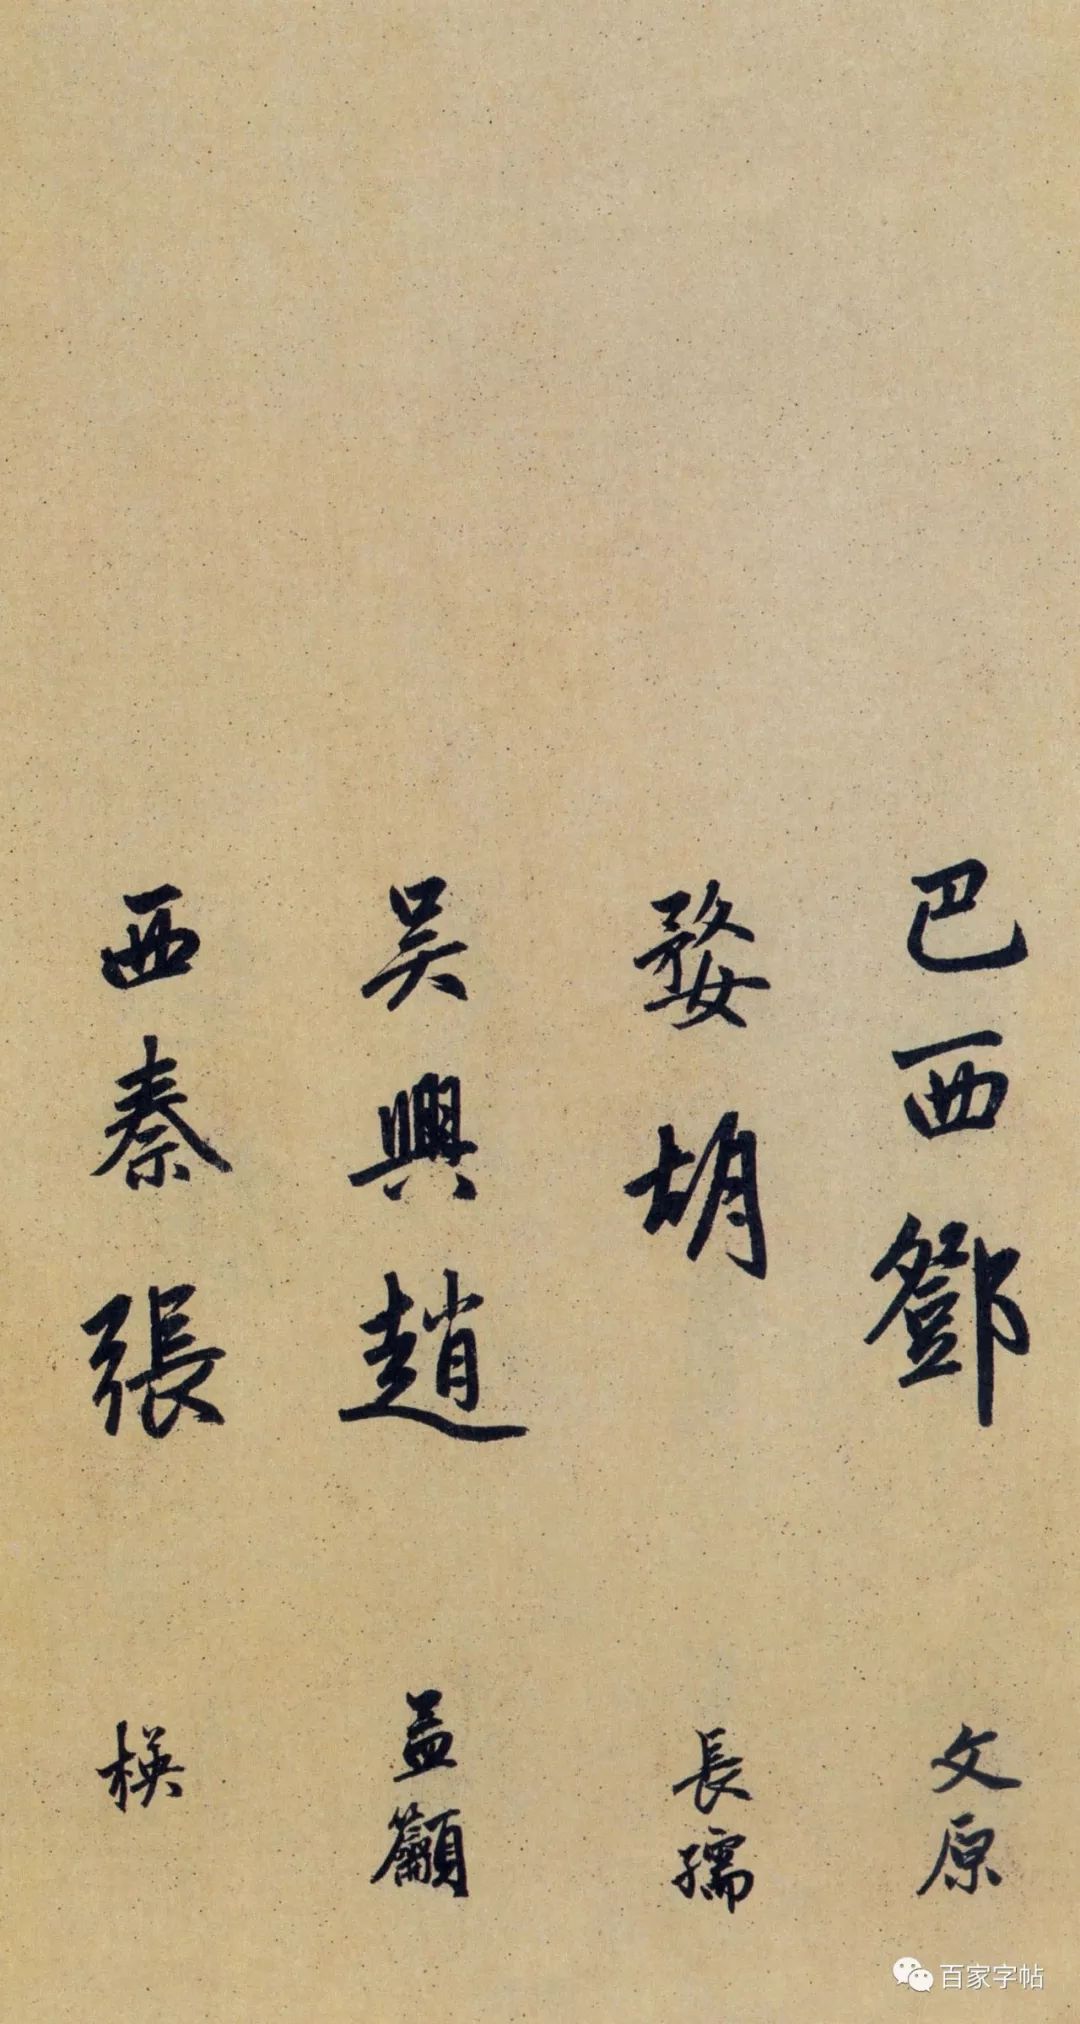 巴西鄧文原
婺胡長孺
吳興趙孟籲
西秦張楧
百家字帖